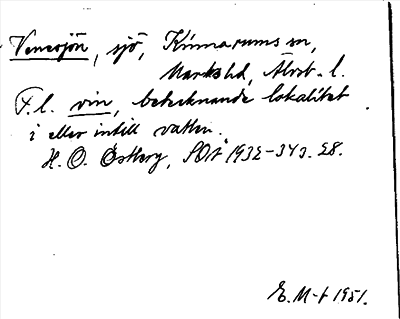 Venersjön, sjö, Kinnarums sn,
Marks hd, Älvsb. l.
F. l. vin, betecknande lokalitet
i eller intill vatten.
H. O. Östberg, SOÅ 1932-34 s. 28.
E. M-t 1951.